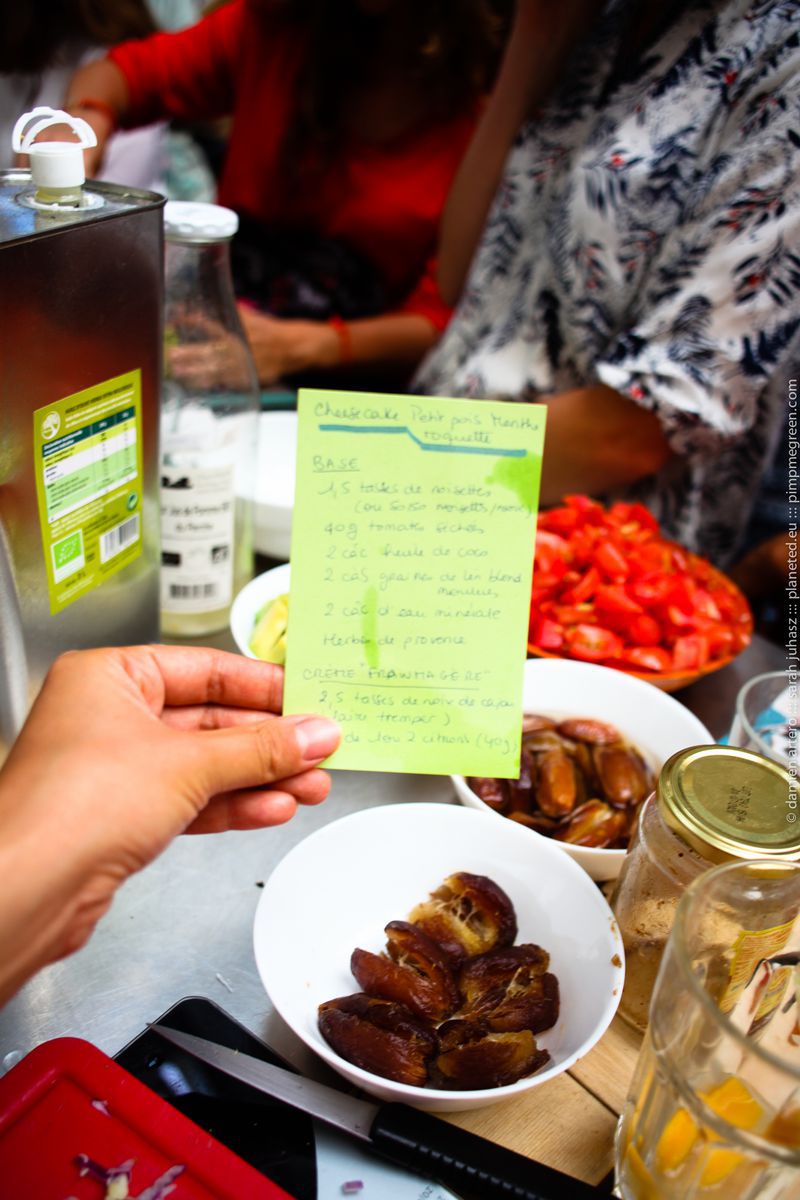 Cheesecake Petit pois Menthe
roquette
BASE
1,5 tasses de noisettes
(ou 50/50 noisettes/
40g tomates séchées
2 càc huile de coco
2 càS graines de lin blond
moulues
2 càc d'eau minérale
Herbes de provence
CRÈME "FRAWMAGÈRE"
2,5 tasses de noix de cajou
(faire tremper)
de 1 ou 2 citrons (40g)
© damien artero ::: sarah juhasz ::: planeted.eu ::: pimpmegreen.com